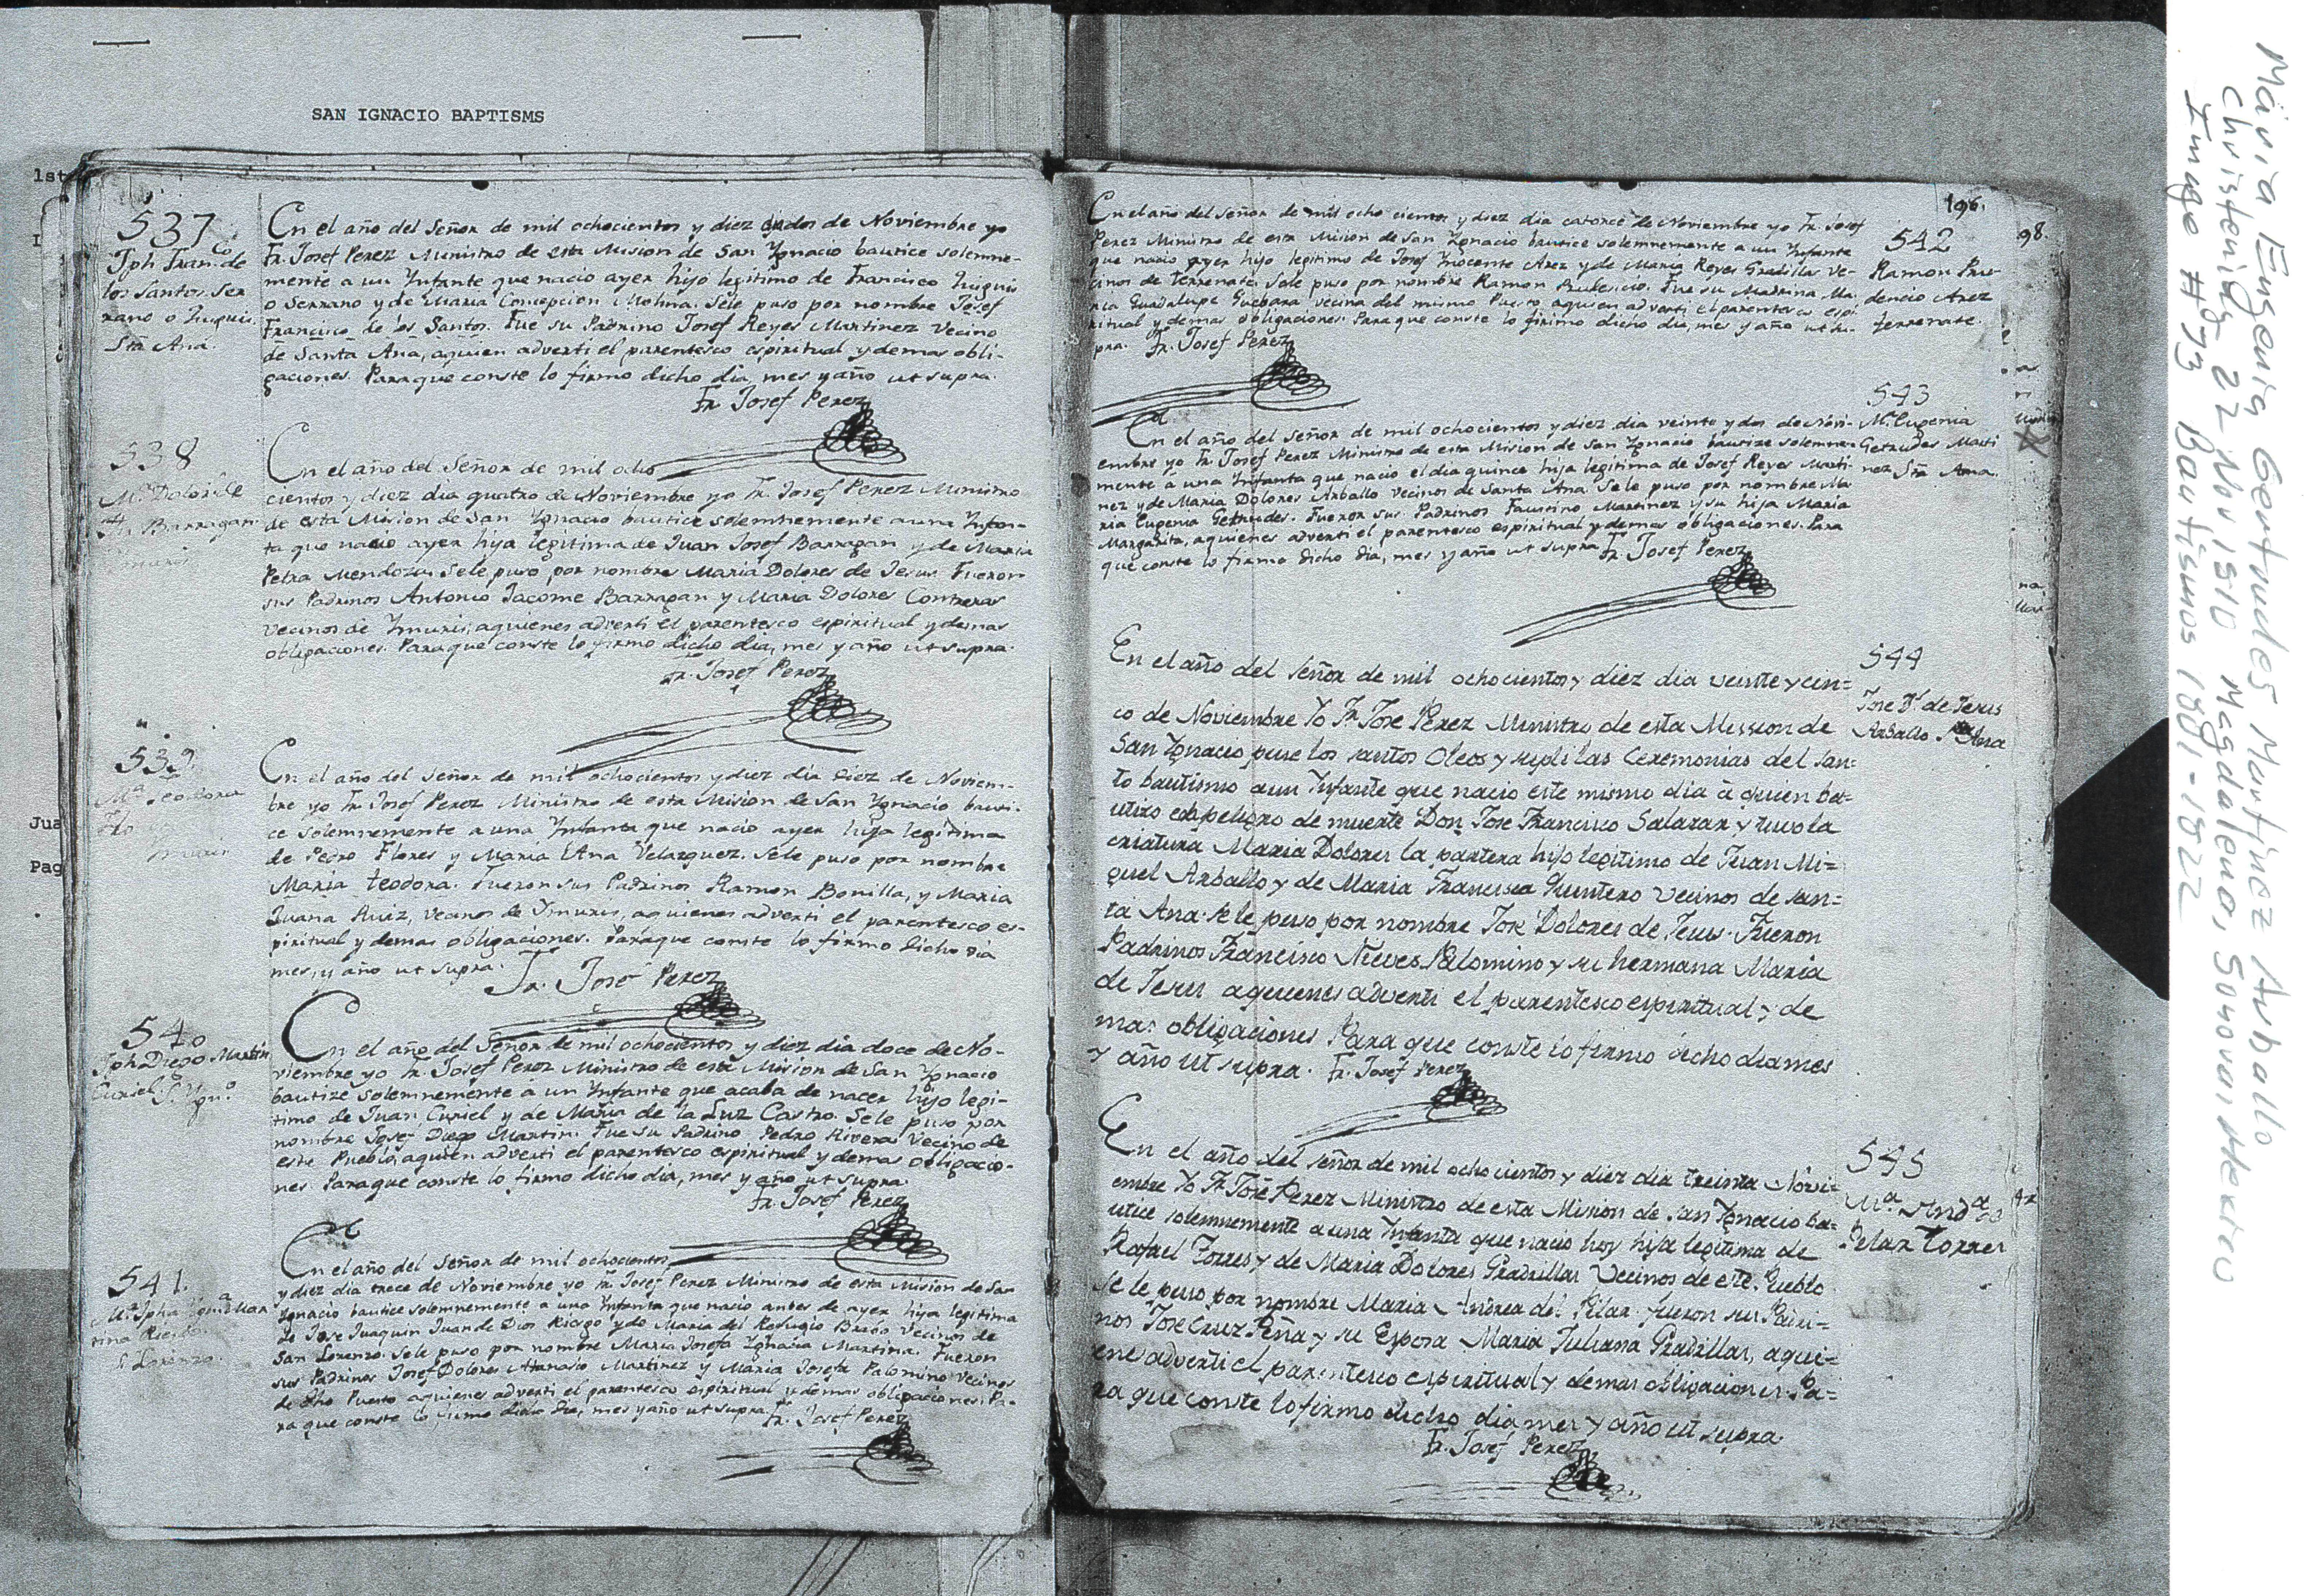 SAN IGNACIO BAPTISMS
1st
I
Jua
Pag
537
Jph Fran.co de
los Santos Ser
rano o Huquis
Sta Ana.
En el año del Señor de mil ochocientos y diez dia dos de Noviembre yo
Fr. Josef Perez Ministro de esta Mision de San Ygnacio bautice solemne-
mente a un Ynfante que nacio ayer hijo legitimo de Francisco Huquis
o Serrano y de Maria Concepcion Molina. Sele puso por nombre Josef
Francisco de los Santos. Fue su Padrino Josef Reyes Martinez Vecino
de Santa Ana, aquien adverti el parentesco espiritual y demas obli-
gaciones. Para que conste lo firmo dicho dia, mes y año ut supra.
Fr. Josef Perez
538
Ma Dolor.s de
Js. Barragan
Ymuris
En el año del Señor de mil ocho
cientos y diez dia quatro de Noviembre yo Fr. Josef Perez Ministro
de esta Mision de San Ygnacio bautice solemnemente a una Ynfan-
ta que nacio ayer hija legitima de Juan Josef Barragan y de Maria
Petra Mendoza. Sele puso por nombre Maria Dolores de Jesus. Fueron
sus Padrinos Antonio Jacome Barragan y Maria Dolores Contreras
Vecinos de Ymuris, aquienes adverti el parentesco espiritual y demas
obligaciones. Para que conste lo firmo dicho dia, mes y año ut supra.
Fr. Josef Perez
539.
Ma Teodora
Flo
Ymuris
En el año del Señor de mil ochocientos y diez dia diez de Noviem-
bre yo Fr. Josef Perez Ministro de esta Mision de San Ygnacio bauti-
ce solemnemente a una Ynfanta que nacio ayer hija legitima
de Pedro Flores y Maria Ana Velazquez. Sele puso por nombre
Maria teodora. Fueron sus Padrinos Ramon Bonilla, y Maria
Juana Ruiz, vecinos de Ymuris, aquienes adverti el parentesco es-
piritual y demas obligaciones. Para que conste lo firmo dicho dia
mes, y año ut supra.
Fr. Josef Perez
540
Jph Diego Martin
Curiel S. Ygn.o
En el año del Señor de mil ochocientos y diez dia doce de No-
viembre yo Fr. Josef Perez Ministro de esta Mision de San Ygnacio
bautize solemnemente a un Ynfante que acaba de nacer hijo legi-
timo de Juan Curiel y de Maria de la Luz Castro. Sele puso por
nombre Josef Diego Martin. Fue su Padrino Pedro Rivera Vecino de
este Pueblo, aquien adverti el parentesco espiritual y demas obligacio-
nes. Para que conste lo firmo dicho dia, mes y año ut supra.
Fr. Josef Perez
541.
Ma Jpha Ygna Mar
tina Riesgo
S. Lorenzo.
En el año del Señor de mil ochocientos
y diez dia trece de Noviembre yo Fr. Josef Perez Ministro de esta Mision de San
Ygnacio bautice solemnemente a una Ynfanta que nacio antes de ayer hija legitima
de Jose Juaquin Juan de Dios Riesgo y de Maria del Refugio Vecinos de
San Lorenzo. Sele puso por nombre Maria Josefa Ygnacia Martina. Fueron
sus Padrinos Josef Dolores Atanasio Martinez y Maria Josefa Palomino Vecinos
de dho Puesto aquienes adverti el parentesco espiritual y demas obligaciones. Pa-
ra que conste lo firmo dicho dia, mes y año ut supra.
Fr. Josef Perez
196.
98.
En el año del Señor de mil ocho cientos y diez dia catorce de Noviembre yo Fr. Josef
Perez Ministro de esta Mision de San Ygnacio bautice solemnemente a un Ynfante
que nacio ayer hijo legitimo de Josef Ynocente Arez y de Maria Reyes Gradillas Ve-
cinos de terrenate. Sele puso por nombre Ramon Prudencio. Fue su Madrina Ma-
ria Guadalupe Guebara vecina del mismo Puesto aquien adverti el parentesco espi-
ritual y demas obligaciones. Para que conste lo firmo dicho dia, mes y año ut su-
pra.
Fr. Josef Perez
542
Ramon Pru-
dencio Arez
terrenate.
En el año del Señor de mil ochocientos y diez dia veinte y dos de Novi-
embre yo Fr. Josef Perez Ministro de esta Mision de San Ygnacio bautize solemne-
mente a una Ynfanta que nacio el dia quince hija legitima de Josef Reyes Marti-
nez y de Maria Dolores Arballo Vecinos de Santa Ana. Sele puso por nombre Ma-
ria Eugenia Getrudes. Fueron sus Padrinos Faustino Martinez y su hija Maria
Margarita, aquienes adverti el parentesco espiritual y demas obligaciones. Para
que conste lo firmo dicho dia, mes y año ut supra
Fr. Josef Perez
543
Ma Eugenia
Getrudes Marti
nez Sta Ana.
En el año del señor de mil ochocientos y diez dia veinte y cin=
co de Noviembre Yo Fr. Jose Perez Ministro de esta Mission de
San Ygnacio puse los santos Oleos y supli las Ceremonias del san=
to bautismo a un Ynfante que nacio este mismo dia à quien ba=
utizo en peligro de muerte Don Jose Francisco Salazar y tuvo la
criatura Maria Dolores la partera hijo legitimo de Juan Mi=
guel Arballo y de Maria Francisca Quintero vecinos de san=
ta Ana. Se le puso por nombre Jose Dolores de Jesus. Fueron
Padrinos Francisco Nieves Palomino y su hermana Maria
de Jesus aquienes adverti el parentesco espiritual y de
mas obligaciones Para que conste lo firmo dicho dia mes
y año ut supra.
Fr. Josef Perez
544
Jose Ds de Jesus
Arballo Sta Ana
En el año del señor de mil ocho cientos y diez dia treinta Novi=
embre Yo Fr. Jose Perez Ministro de esta Mision de san Ygnacio ba=
utice solemnemente a una Ynfanta que nacio hoy hija legitima de
Rafael Torres y de Maria Dolores Gradillas Vecinos de este Pueblo
Se le puso por nombre Maria Andrea del Pilar fueron sus Padri=
nos Jose Cruz Peña y su Esposa Maria Juliana Gradillas, aqui=
ene adverti el parentesco espiritual y demas obligaciones. Pa=
ra que conste lo firmo dicho dia mes y año ut supra.
Fr. Josef Perez
545
Ma Anda del
Pelar Torres
Maria Eugenia Gertrudes Martinez Arballo
Christening 22 Nov 1810 Magdalena, Sonora, Mexico
Image #73 Bautismos 1801-1822